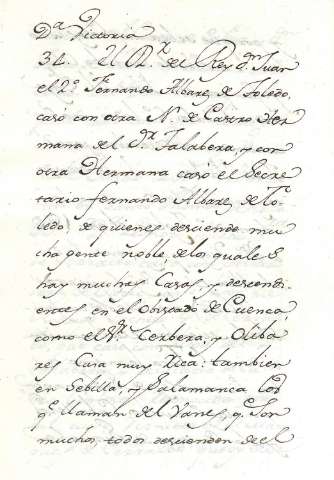 D.ª Victoria
34. El R.ˣ del Rey d.ⁿ Juan
el 2.º Fernando Albarez de Toledo,
casó con otra N. de Castro Her
mana del D.ʳ Talabera, y con
otra Hermana casó el Secre
tario fernando Albarez de To-
ledo, de quienes desciende mu
cha gente noble, de los quales
hay muchas Casas, y descendi
entes en el Obispado de Cuenca,
como el S.ʳ Cerbera, y Oliba
res Casa muy Rica: tambien
en Sebilla, y Salamanca los
q.ᵉ llaman del Yanes, q.ᵉ son
muchos, todos descienden de el